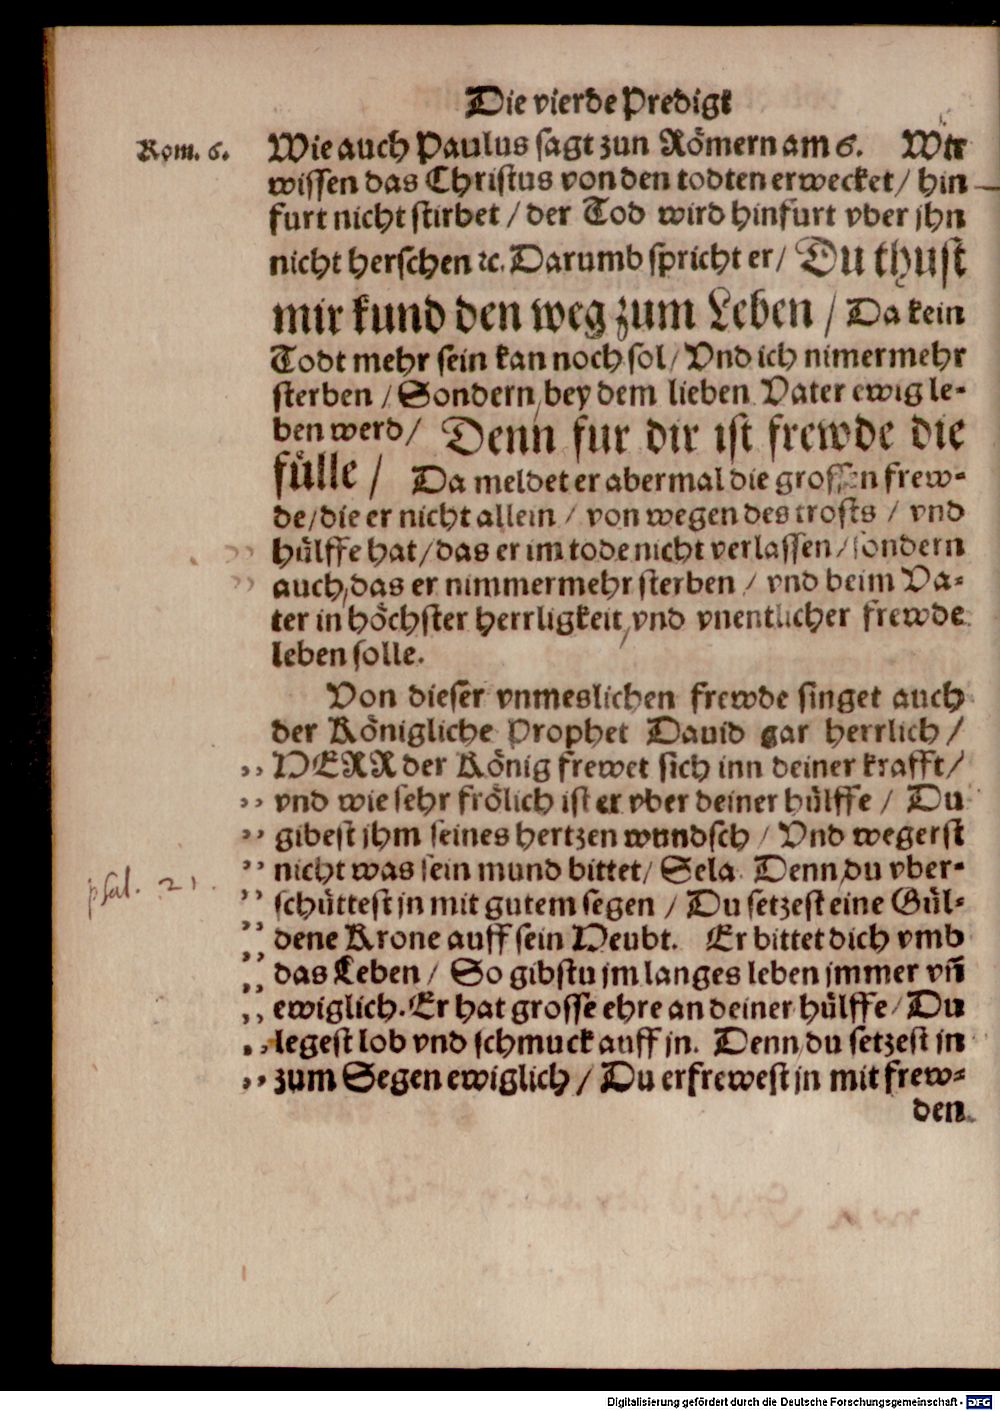 Die vierde Predigt
Rom. 6.
Wie auch Paulus sagt zun Römern am 6. Wir
wissen das Christus von den todten erwecket / hin
furt nicht stirbet / der Tod wird hinfurt vber jhn
nicht herschen ꝛc. Darumb spricht er / Du thust
mir kund den weg zum Leben / Da kein
Todt mehr sein kan noch sol / Vnd ich nimermehr
sterben / Sondern bey dem lieben Vater ewig le-
ben werd / Denn fur dir ist frewde die
fülle / Da meldet er abermal die grossen frew-
de / die er nicht allein / von wegen des trosts / vnd
hülffe hat / das er im tode nicht verlassen / sondern
auch / das er nimmermehr sterben / vnd beim Va-
ter in höchster herrligkeit / vnd vnentlicher frewde
leben solle.
Von dieser vnmeslichen frewde singet auch
der Königliche Prophet Dauid gar herrlich /
„ HERR der König frewet sich inn deiner krafft /
„ vnd wie sehr frölich ist er vber deiner hülffe / Du
„ gibest jhm seines hertzen wundsch / Vnd wegerst
„ nicht was sein mund bittet / Sela. Denn du vber-
psal. 21.
„ schüttest jn mit gutem segen / Du setzest eine Gül-
„ dene Krone auff sein Heubt. Er bittet dich vmb
„ das Leben / So gibstu jm langes leben jmmer vñ
„ ewiglich. Er hat grosse ehre an deiner hülffe / Du
„ legest lob vnd schmuck auff jn. Denn du setzest jn
„ zum Segen ewiglich / Du erfrewest jn mit frew-
den
Digitalisierung gefördert durch die Deutsche Forschungsgemeinschaft - DFG